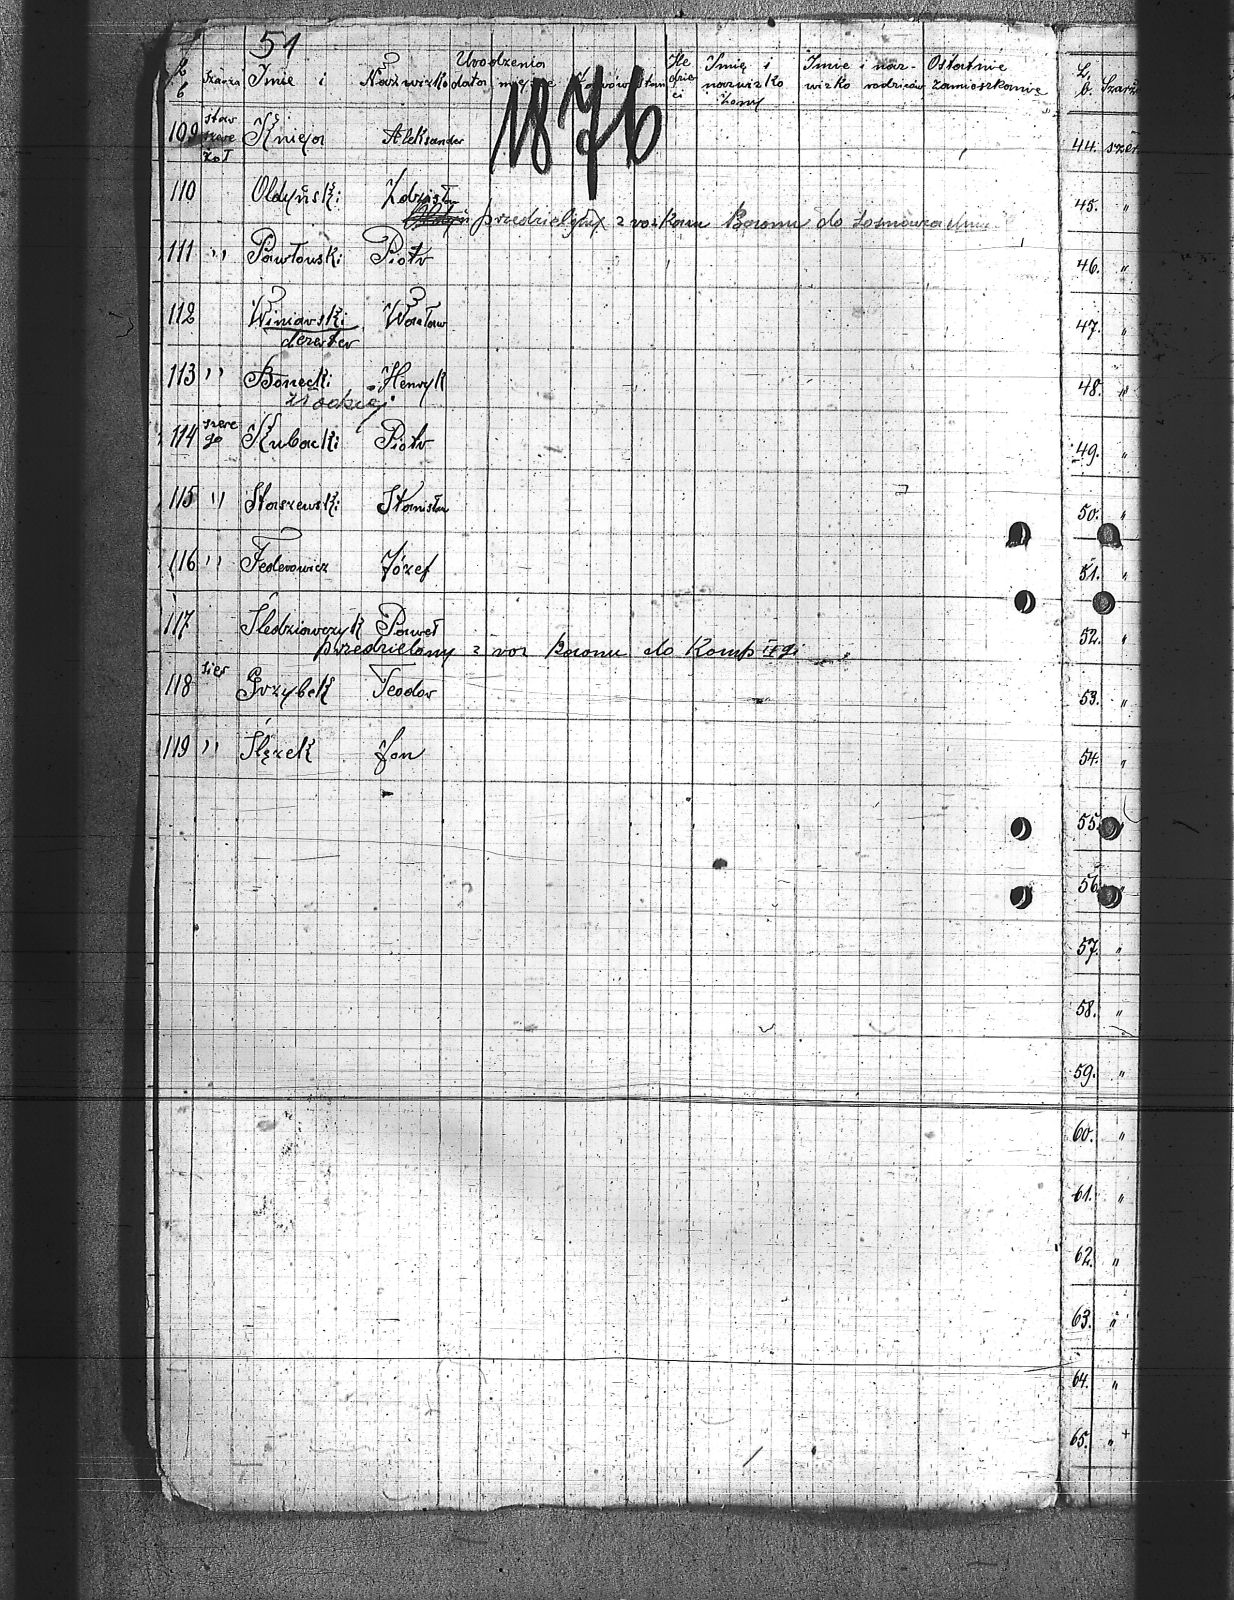 51
L. b. Szarża Imię i Nazwisko Urodzenia data miejsce Zawód Stan Ile dzieci Imię i nazwisko żony Imie i naz- wisko rodziców Ostatnie zamieszkanie
1876
109 star szere żoł Knieja Aleksander
110 Oldyński Zdzisław
przedzielony z rozkazu Baonu do
111 " Pawłowski Piotr
112 Winiarski Wacław
dezerter
113 " Bonecki Henryk
złodziej
114 szere go Kubacki Piotr
115 " Staszewski Stanisław
116 " Federowicz Józef
117 Śledziawczyk Paweł
przedzielony z roz Baonu do Komp
118 sier Grzybek Teodor
119 " Ślęzek Jan
L. b. Szarż
44. szer
45. "
46. "
47. "
48. "
49. "
50. "
51. "
52. "
53. "
54. "
55. "
56. "
57. "
58. "
59. "
60. "
61. "
62. "
63. "
64. "
65. "